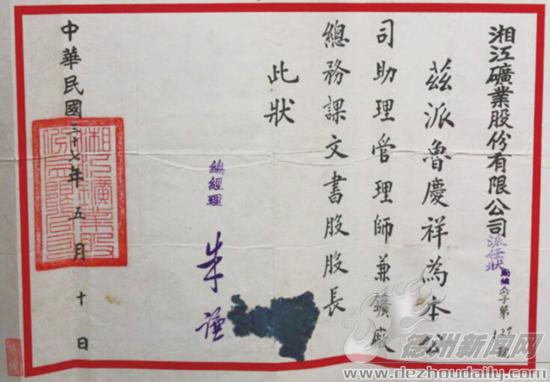 湘江礦業股份有限公司派任狀
字第
號
茲派魯慶祥為本公
司助理管理師兼礦廠
總務課文書股股長
此狀
總經理
朱謹
中華民國三十七年五月十日
德州新闻网
www.dezhoudaily.com